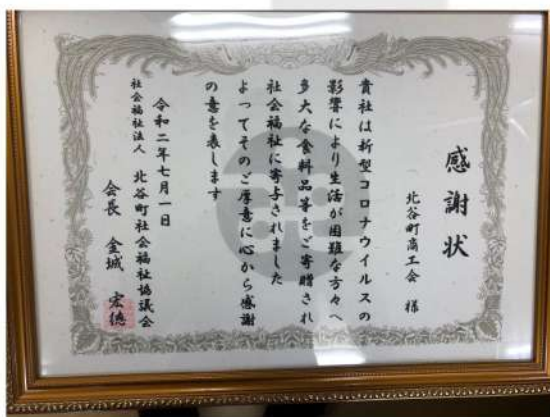 感謝状
北谷町商工会 様
貴社は新型コロナウイルスの
影響により生活が困難な方々へ
多大な食料品等をご寄贈され
社会福祉に寄与されました
よってそのご厚意に心から感謝
の意を表します
令和二年七月一日
社会福祉法人 北谷町社会福祉協議会
会長 金城 宏徳